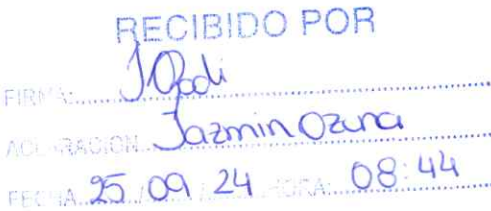 RECIBIDO POR
FIRMA:
ACLARACION: Jazmin Ozuna
FECHA 25 / 09 / 24 HORA: 08:44